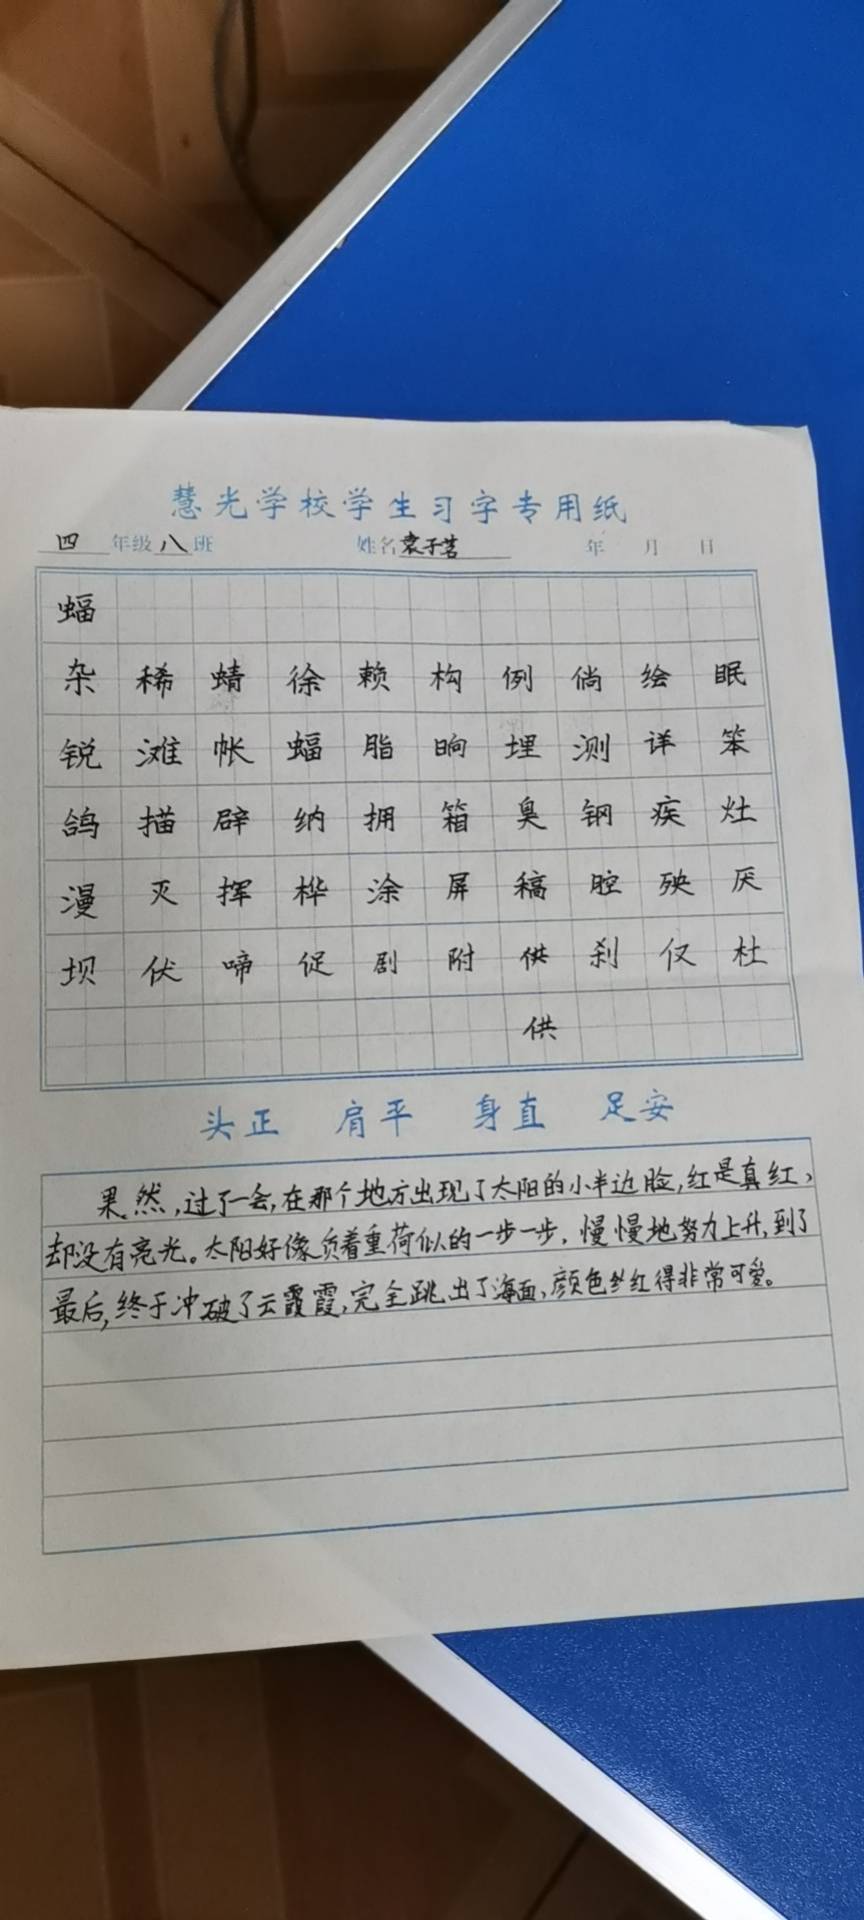 慧光学校学生习字专用纸
四年级八班 姓名袁子茗 年 月 日
蝠
杂 稀 蜻 徐 赖 构 例 倘 绘 眠
锐 滩 帐 蝠 脂 晌 埋 测 详 笨
鸽 描 辟 纳 拥 箱 臭 钢 疾 灶
漫 灭 挥 桦 涂 屏 稿 腔 殃 厌
坝 伏 啼 促 剧 附 供 刹 仅 杜
供
头正 肩平 身直 足安
果然,过了一会,在那个地方出现了太阳的小半边脸,红是真红,
却没有亮光。太阳好像负着重荷似的一步一步,慢慢地努力上升,到了
最后,终于冲破了云霞霞,完全跳出了海面,颜色红得非常可爱。